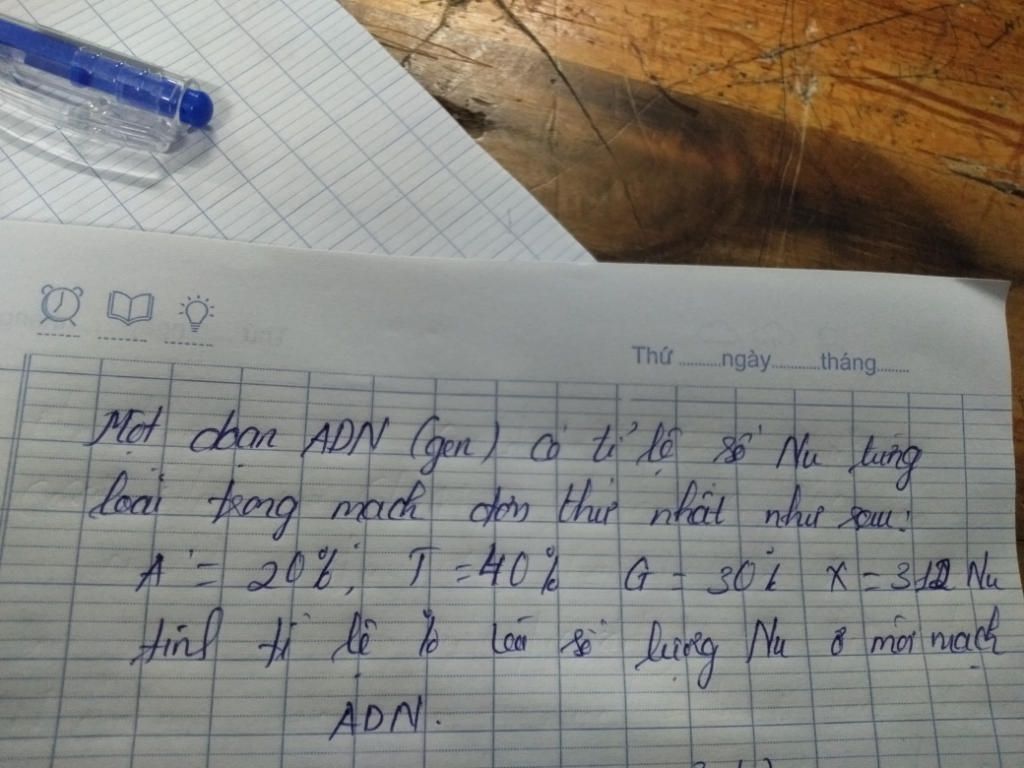 Thứ ngày tháng
Một đoạn ADN (gen) có tỉ lệ số Nu từng
loại trong mạch đơn thứ nhất như sau:
A = 20%, T = 40% G = 30% X = 312 Nu
tính tỉ lệ % loại số lượng Nu ở mỗi mạch
ADN.